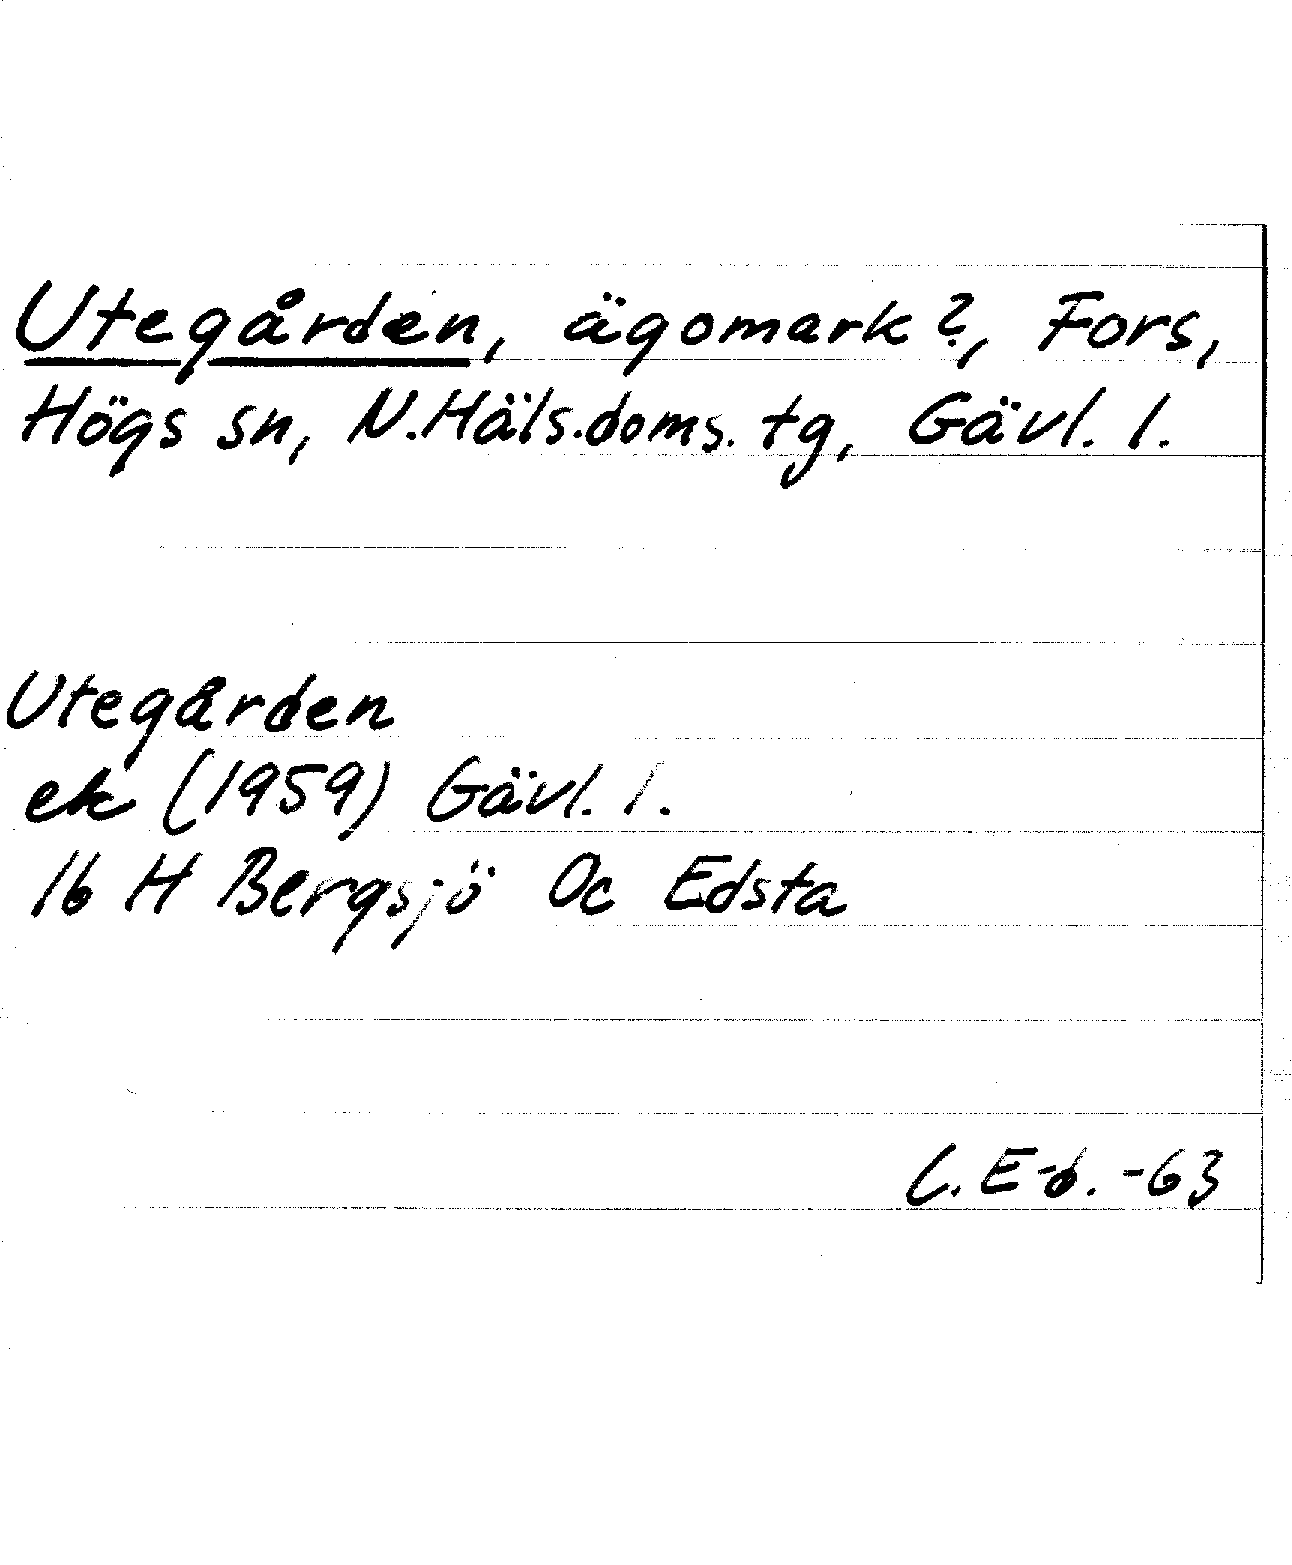 Utegården, ägomark?, Fors,
Högs sn, N.Häls.doms.tg, Gävl. l.
Utegården
ek (1959) Gävl. l.
16 H Bergsjö Oc Edsta
C. E-b. -63